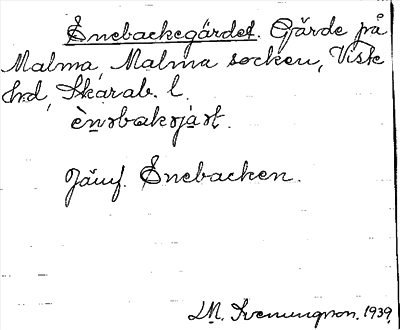 Enebackegärdet. Gärde på
Malma, Malma socken, Viste
hd, Skarab. l.
Jämf. Enebacken.
J.M. Svenungson. 1939.